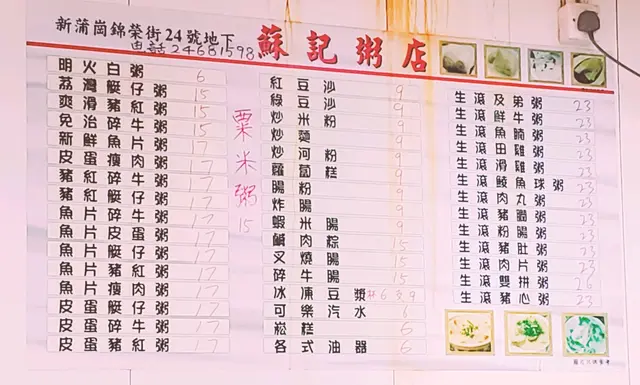 新蒲崗錦榮街24號地下
電話24681598
蘇記粥店
明火白粥 6
荔灣艇仔粥 15
爽滑豬紅粥 15
免治碎牛粥 15
新鮮魚片粥 17
皮蛋瘦肉粥 17
豬紅碎牛粥 17
豬紅艇仔粥 17
魚片碎牛粥 17
魚片皮蛋粥 17
魚片艇仔粥 17
魚片豬紅粥 17
魚片瘦肉粥 17
皮蛋艇仔粥 17
皮蛋碎牛粥 17
皮蛋豬紅粥 17
粟米粥 15
紅豆沙 9
綠豆沙 9
炒米粉 9
炒麵 9
炒河粉 9
蘿蔔糕 9
腸粉 9
炸腸 9
蝦米腸 9
鹹肉粽 15
叉燒腸 15
碎牛腸 15
冰凍豆漿 #6 支9
可樂汽水 6
崧糕 6
各式油器 6
生滾及弟粥 23
生滾鮮牛粥 23
生滾魚腩粥 23
生滾田雞粥 23
生滾滑雞粥 23
生滾鯪魚球粥 23
生滾肉丸粥 23
生滾豬膶粥 23
生滾粉腸粥 23
生滾豬肚粥 23
生滾肉片粥 23
生滾雙拼粥 26
生滾豬心粥 23